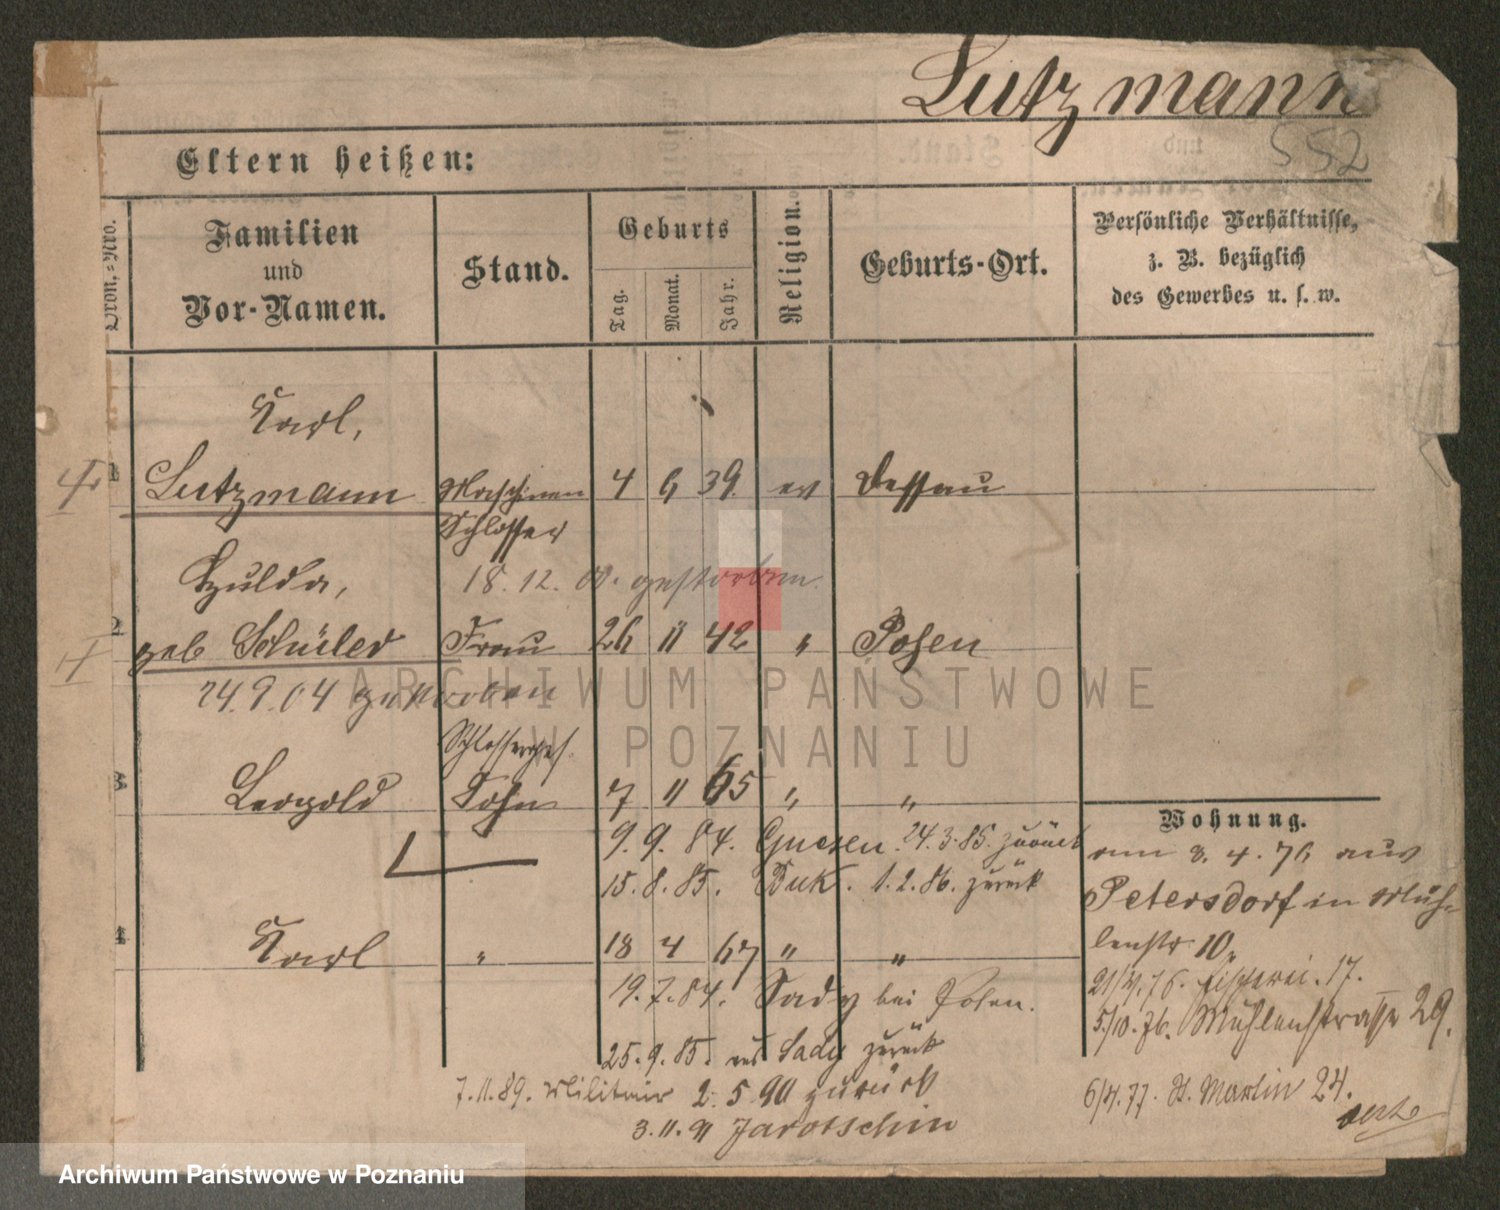 Lutzmann
552
Eltern heißen:
Oron.=Nro.
Familien
und
Vor-Namen.
Stand.
Geburts
Tag.
Monat.
Jahr.
Religion.
Geburts-Ort.
Persönliche Verhältnisse,
z. B. bezüglich
des Gewerbes u. s. w.
Karl,
1 Lutzmann Maschinen 4 6 39. ev Dessau
Schlosser
Hulda, 18. 12. 00. gestorben
2 geb Schüler Frau 26 11 42 " Posen
24.9.04 gestorben
Schlosserges.
3 Leopold Sohn 7 11 65 " "
9. 9. 84. Gnesen. 24.3.85. zurück
15. 8. 85. Buk. 1.2.86. zurück
4 Karl " 18 4 67 " "
19. 7. 84. Sady bei Posen.
25. 9. 85. aus Sady zurück
7.11.89. Militair 2. 5. 90 zurück
3.11.91 Jarotschin
Wohnung.
am 3. 4. 76 aus
Petersdorf in Müh-
lenstr 10,
21/4.76. Fischerei. 17.
5/10.76. Mühlenstrasse 29.
6/4.77. St. Martin 24.
ARCHIWUM PAŃSTWOWE
W POZNANIU
Archiwum Państwowe w Poznaniu